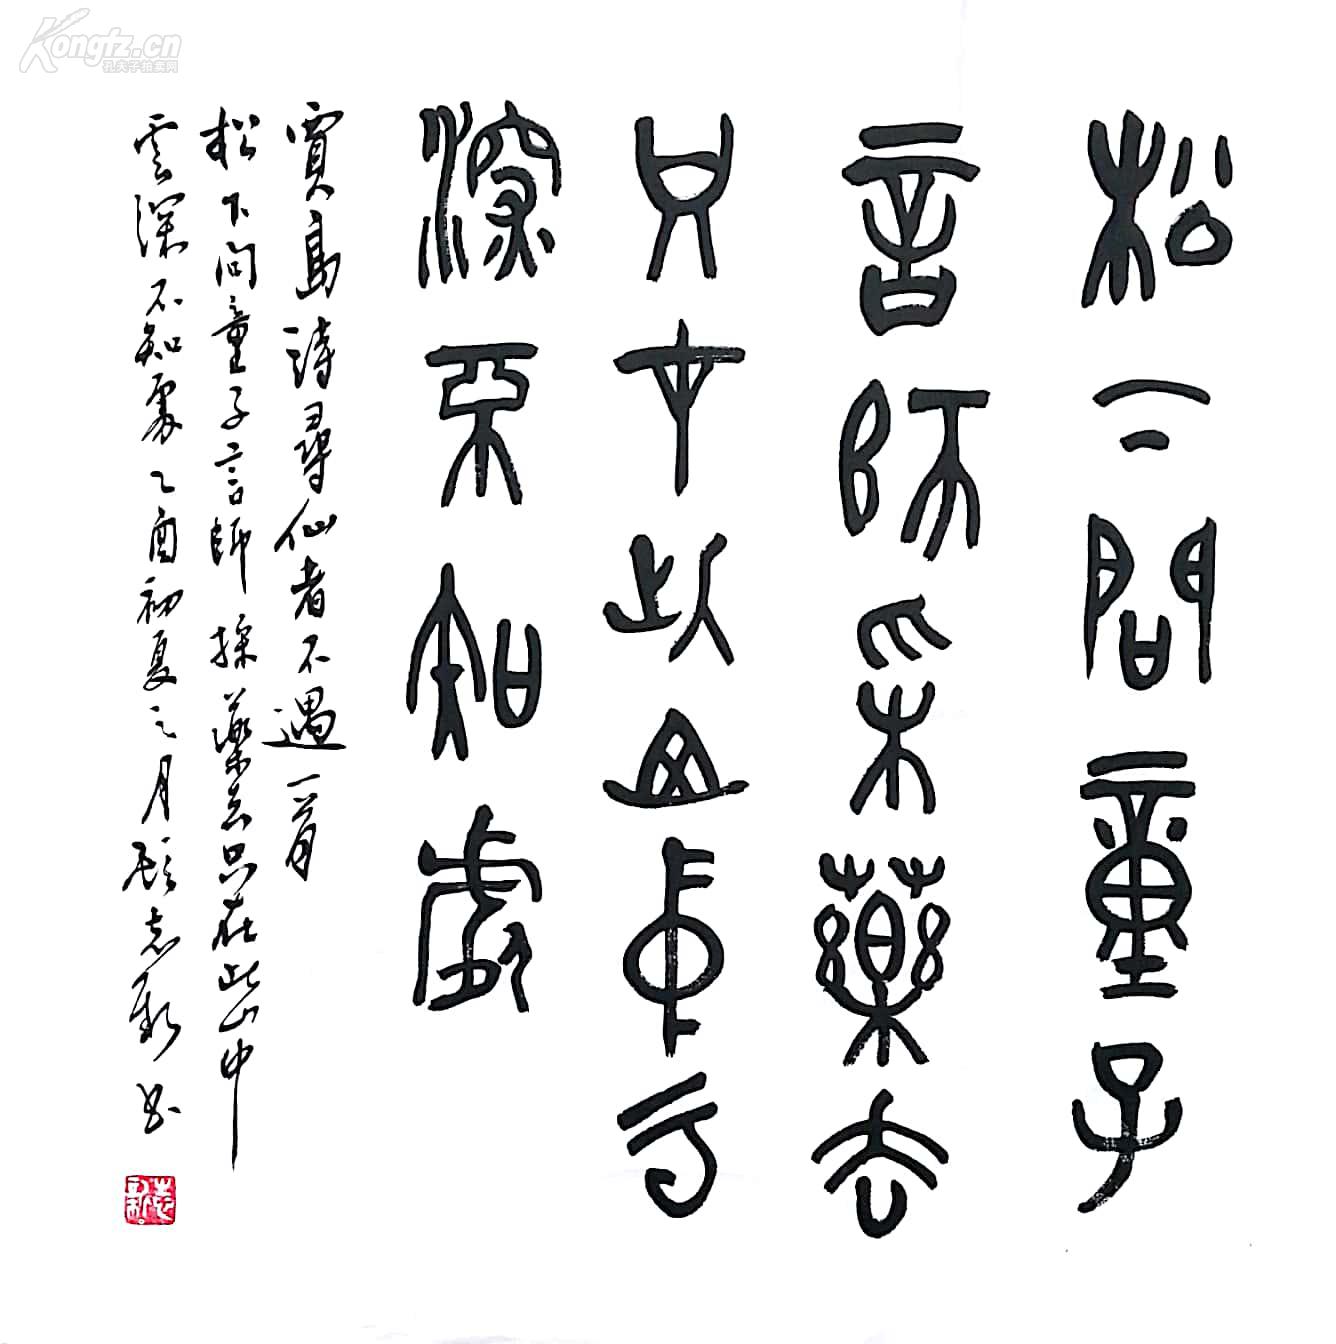 松下問童子
言師采藥去
只才此山中云
深不知處
賈島詩尋仙者不遇一首
松下問童子言師採藥去只在此山中
雲深不知處乙酉初夏之月顧志新书
志新
Kongfz.cn
孔夫子拍卖网